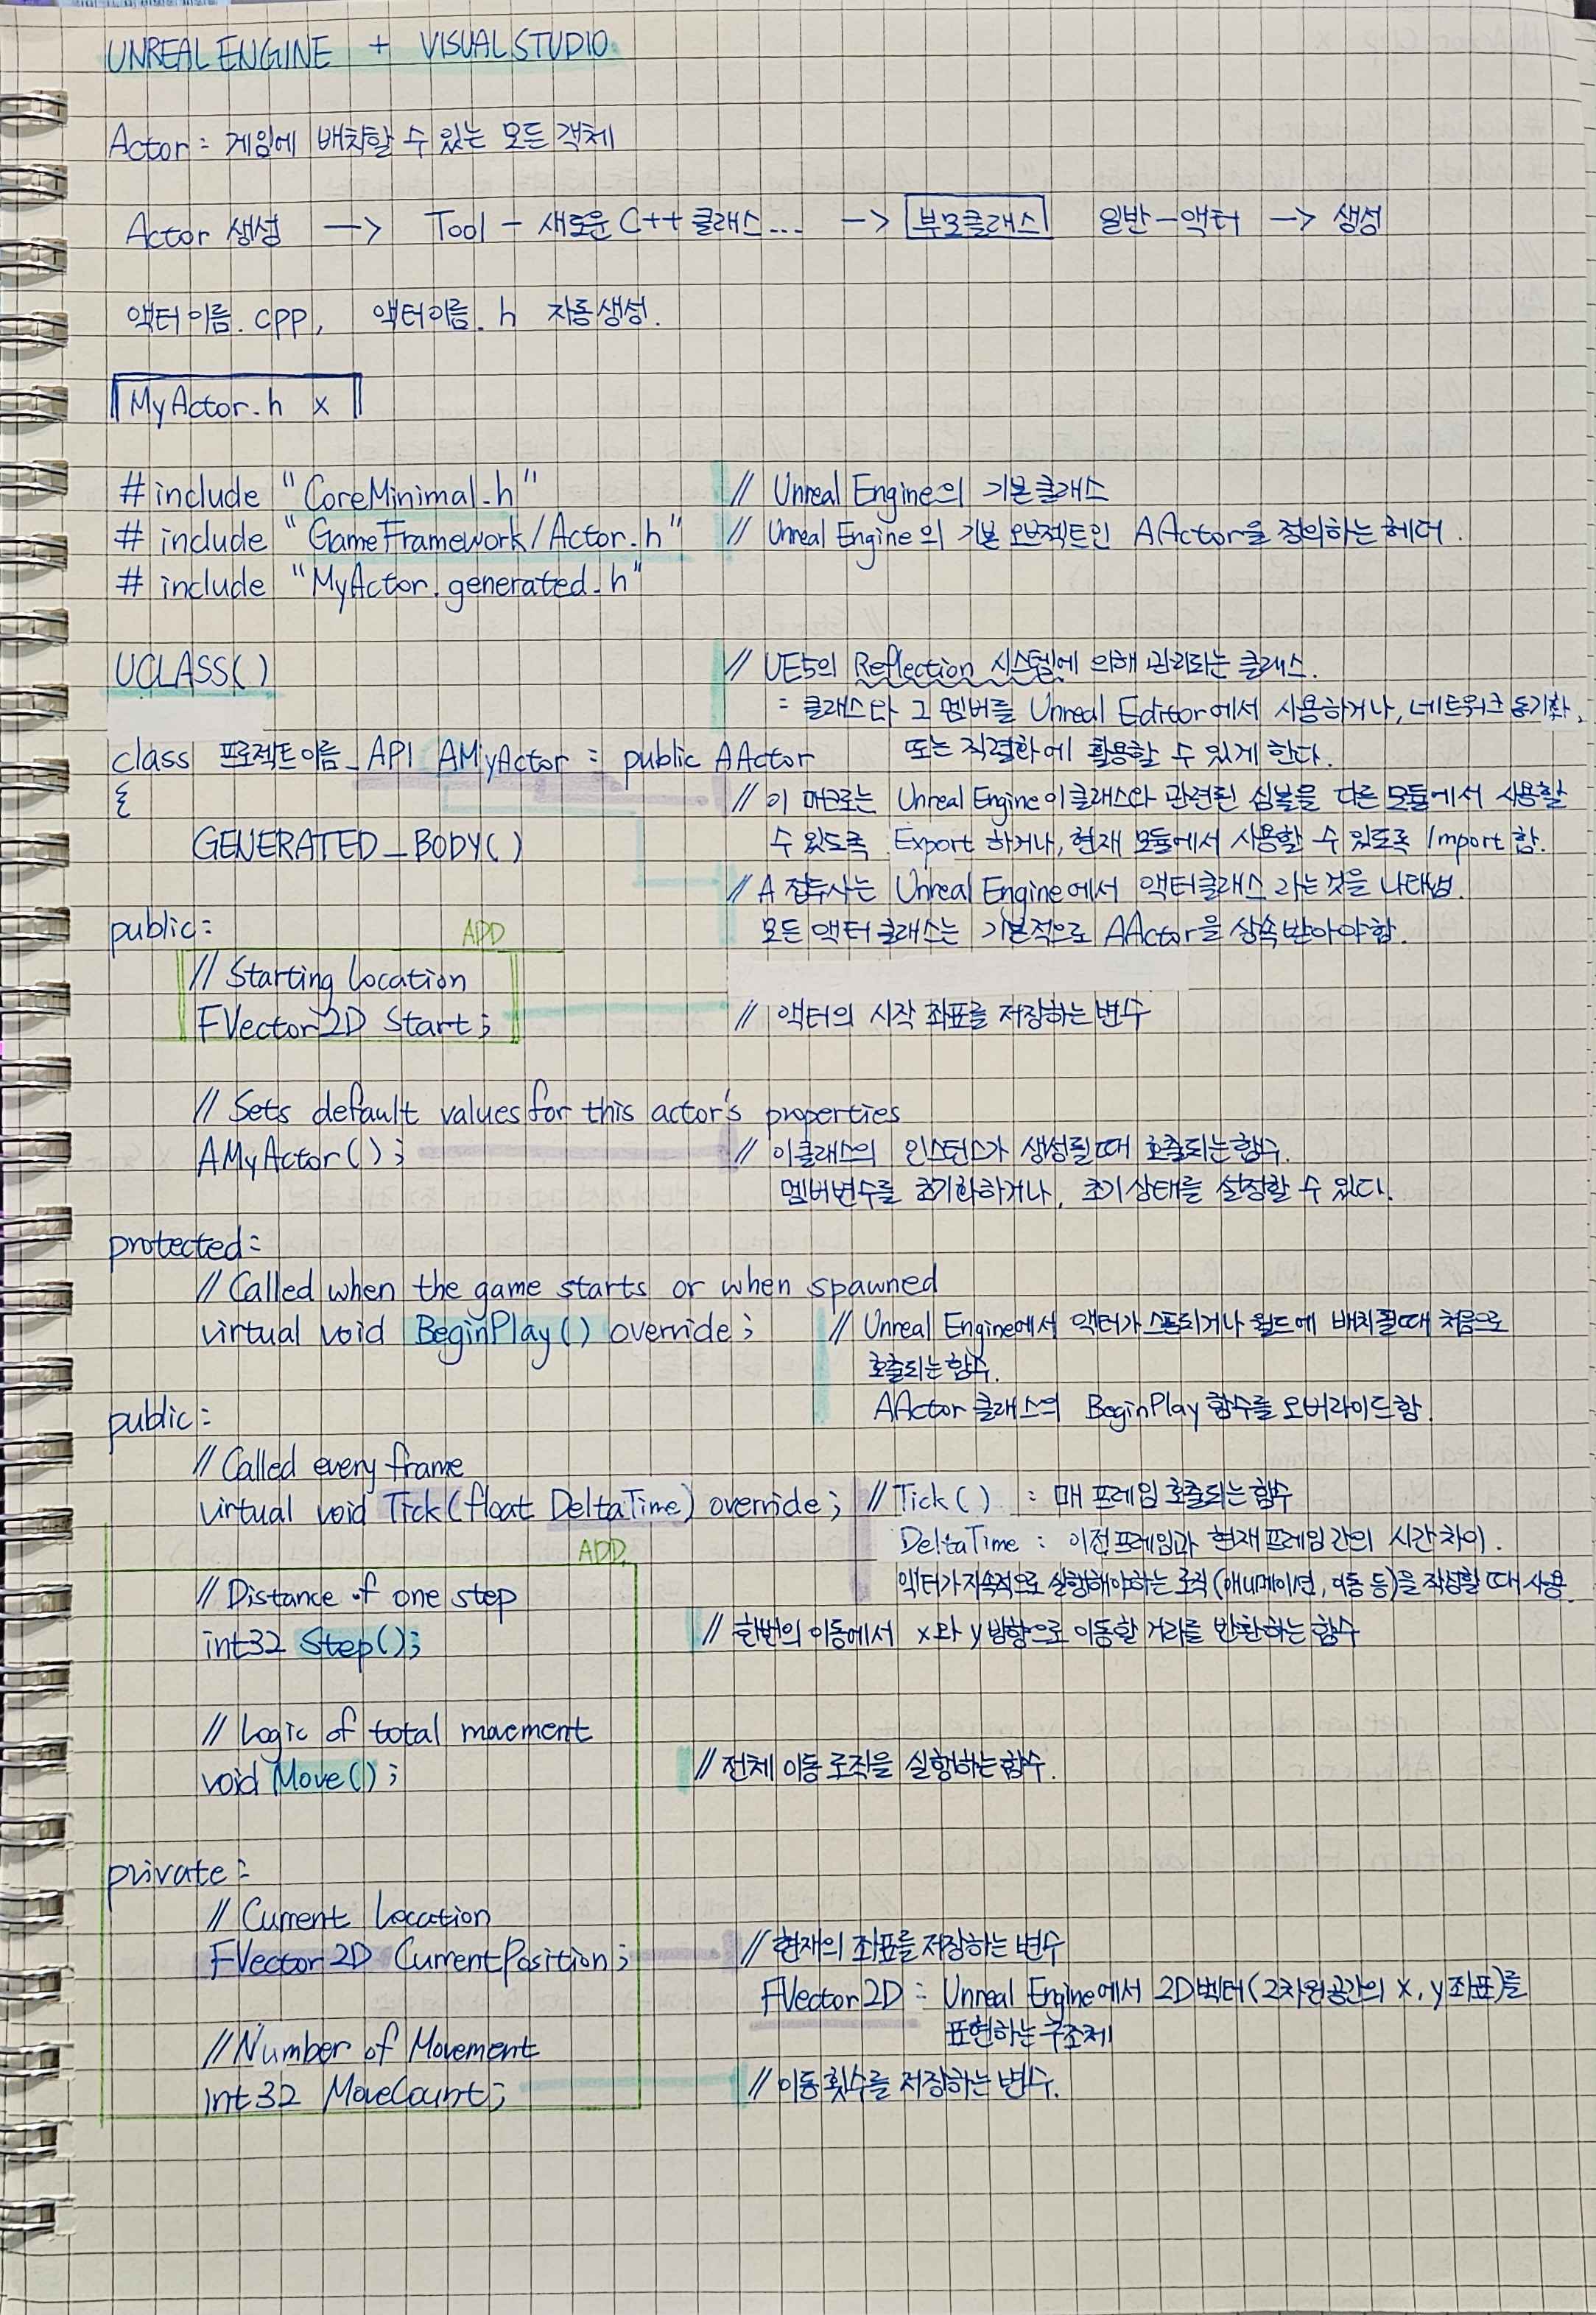 UNREAL ENGINE + VISUAL STUDIO.
Actor : 게임에 배치할 수 있는 모든 객체
Actor 생성 —> Tool - 새로운 C++ 클래스... —> 부모클래스 일반-액터 —> 생성
액터이름.cpp, 액터이름.h 자동생성.
MyActor.h x
#include "CoreMinimal.h" // Unreal Engine의 기본클래스
#include "GameFramework/Actor.h" // Unreal Engine의 기본 오브젝트인 AActor을 정의하는 헤더.
#include "MyActor.generated.h"
UCLASS() // UE5의 Reflection 시스템에 의해 관리되는 클래스.
= 클래스와 그 멤버를 Unreal Editor에서 사용하거나, 네트워크 동기화,
class 프로젝트이름_API AMyActor : public AActor 또는 직렬화에 활용할 수 있게 한다.
{ // 이 매크로는 Unreal Engine이 클래스와 관련된 심볼을 다른 모듈에서 사용할
GENERATED_BODY() 수 있도록 Export 하거나, 현재 모듈에서 사용할 수 있도록 Import 함.
// A 접두사는 Unreal Engine에서 액터클래스 라는 것을 나타냄.
public: ADD 모든 액터 클래스는 기본적으로 AActor을 상속받아야함.
// Starting Location
FVector2D Start; // 액터의 시작 좌표를 저장하는 변수
// Sets default values for this actor's properties
AMyActor(); // 이클래스의 인스턴스가 생성될때 호출되는함수.
멤버변수를 초기화하거나, 초기상태를 설정할 수 있다.
protected:
// Called when the game starts or when spawned
virtual void BeginPlay() override; // Unreal Engine에서 액터가 스폰되거나 월드에 배치될때 처음으로
호출되는함수.
public: AActor 클래스의 BeginPlay 함수를 오버라이드함.
// Called every frame
virtual void Tick(float DeltaTime) override; // Tick() : 매 프레임 호출되는 함수
ADD DeltaTime : 이전프레임과 현재프레임 간의 시간차이.
// Distance of one step 액터가 지속적으로 실행해야하는 로직(애니메이션, 이동 등)을 작성할 때 사용.
int32 Step(); // 한번의 이동에서 x와 y방향으로 이동할 거리를 반환하는 함수
// Logic of total movement
void Move(); // 전체 이동 로직을 실행하는함수.
private:
// Current Location
FVector2D CurrentPosition; // 현재의 좌표를 저장하는 변수
FVector2D : Unreal Engine에서 2D벡터(2차원공간의 x, y좌표)를
표현하는 구조체
// Number of Movement
int32 MoveCount; // 이동횟수를 저장하는변수.